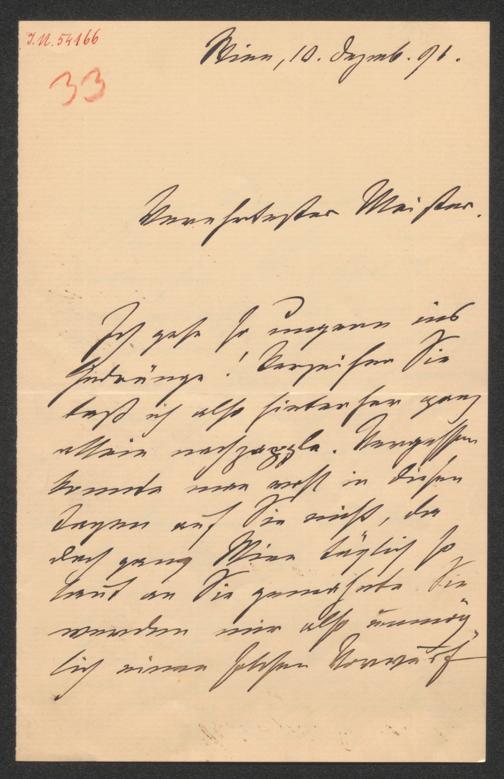 I.N. 54166
33
Wien, 10. Dezemb. 91.
Verehrtester Meister.
Ich gehe so ungern ins
Gedränge! Verzeihen Sie
daß ich also hinterher ganz
allein nachzapple. Vergessen
konnte man wohl in diesen
Tagen auf Sie nicht, da
doch ganz Wien täglich so
laut an Sie gemahnte. Sie
werden mir also unmög
lich einen solchen Vorwurf